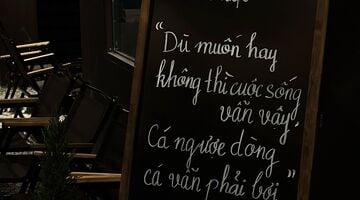 "Dù muốn hay
không thì cuộc sống
vẫn vậy.
Cá ngược dòng
cá vẫn phải bơi"